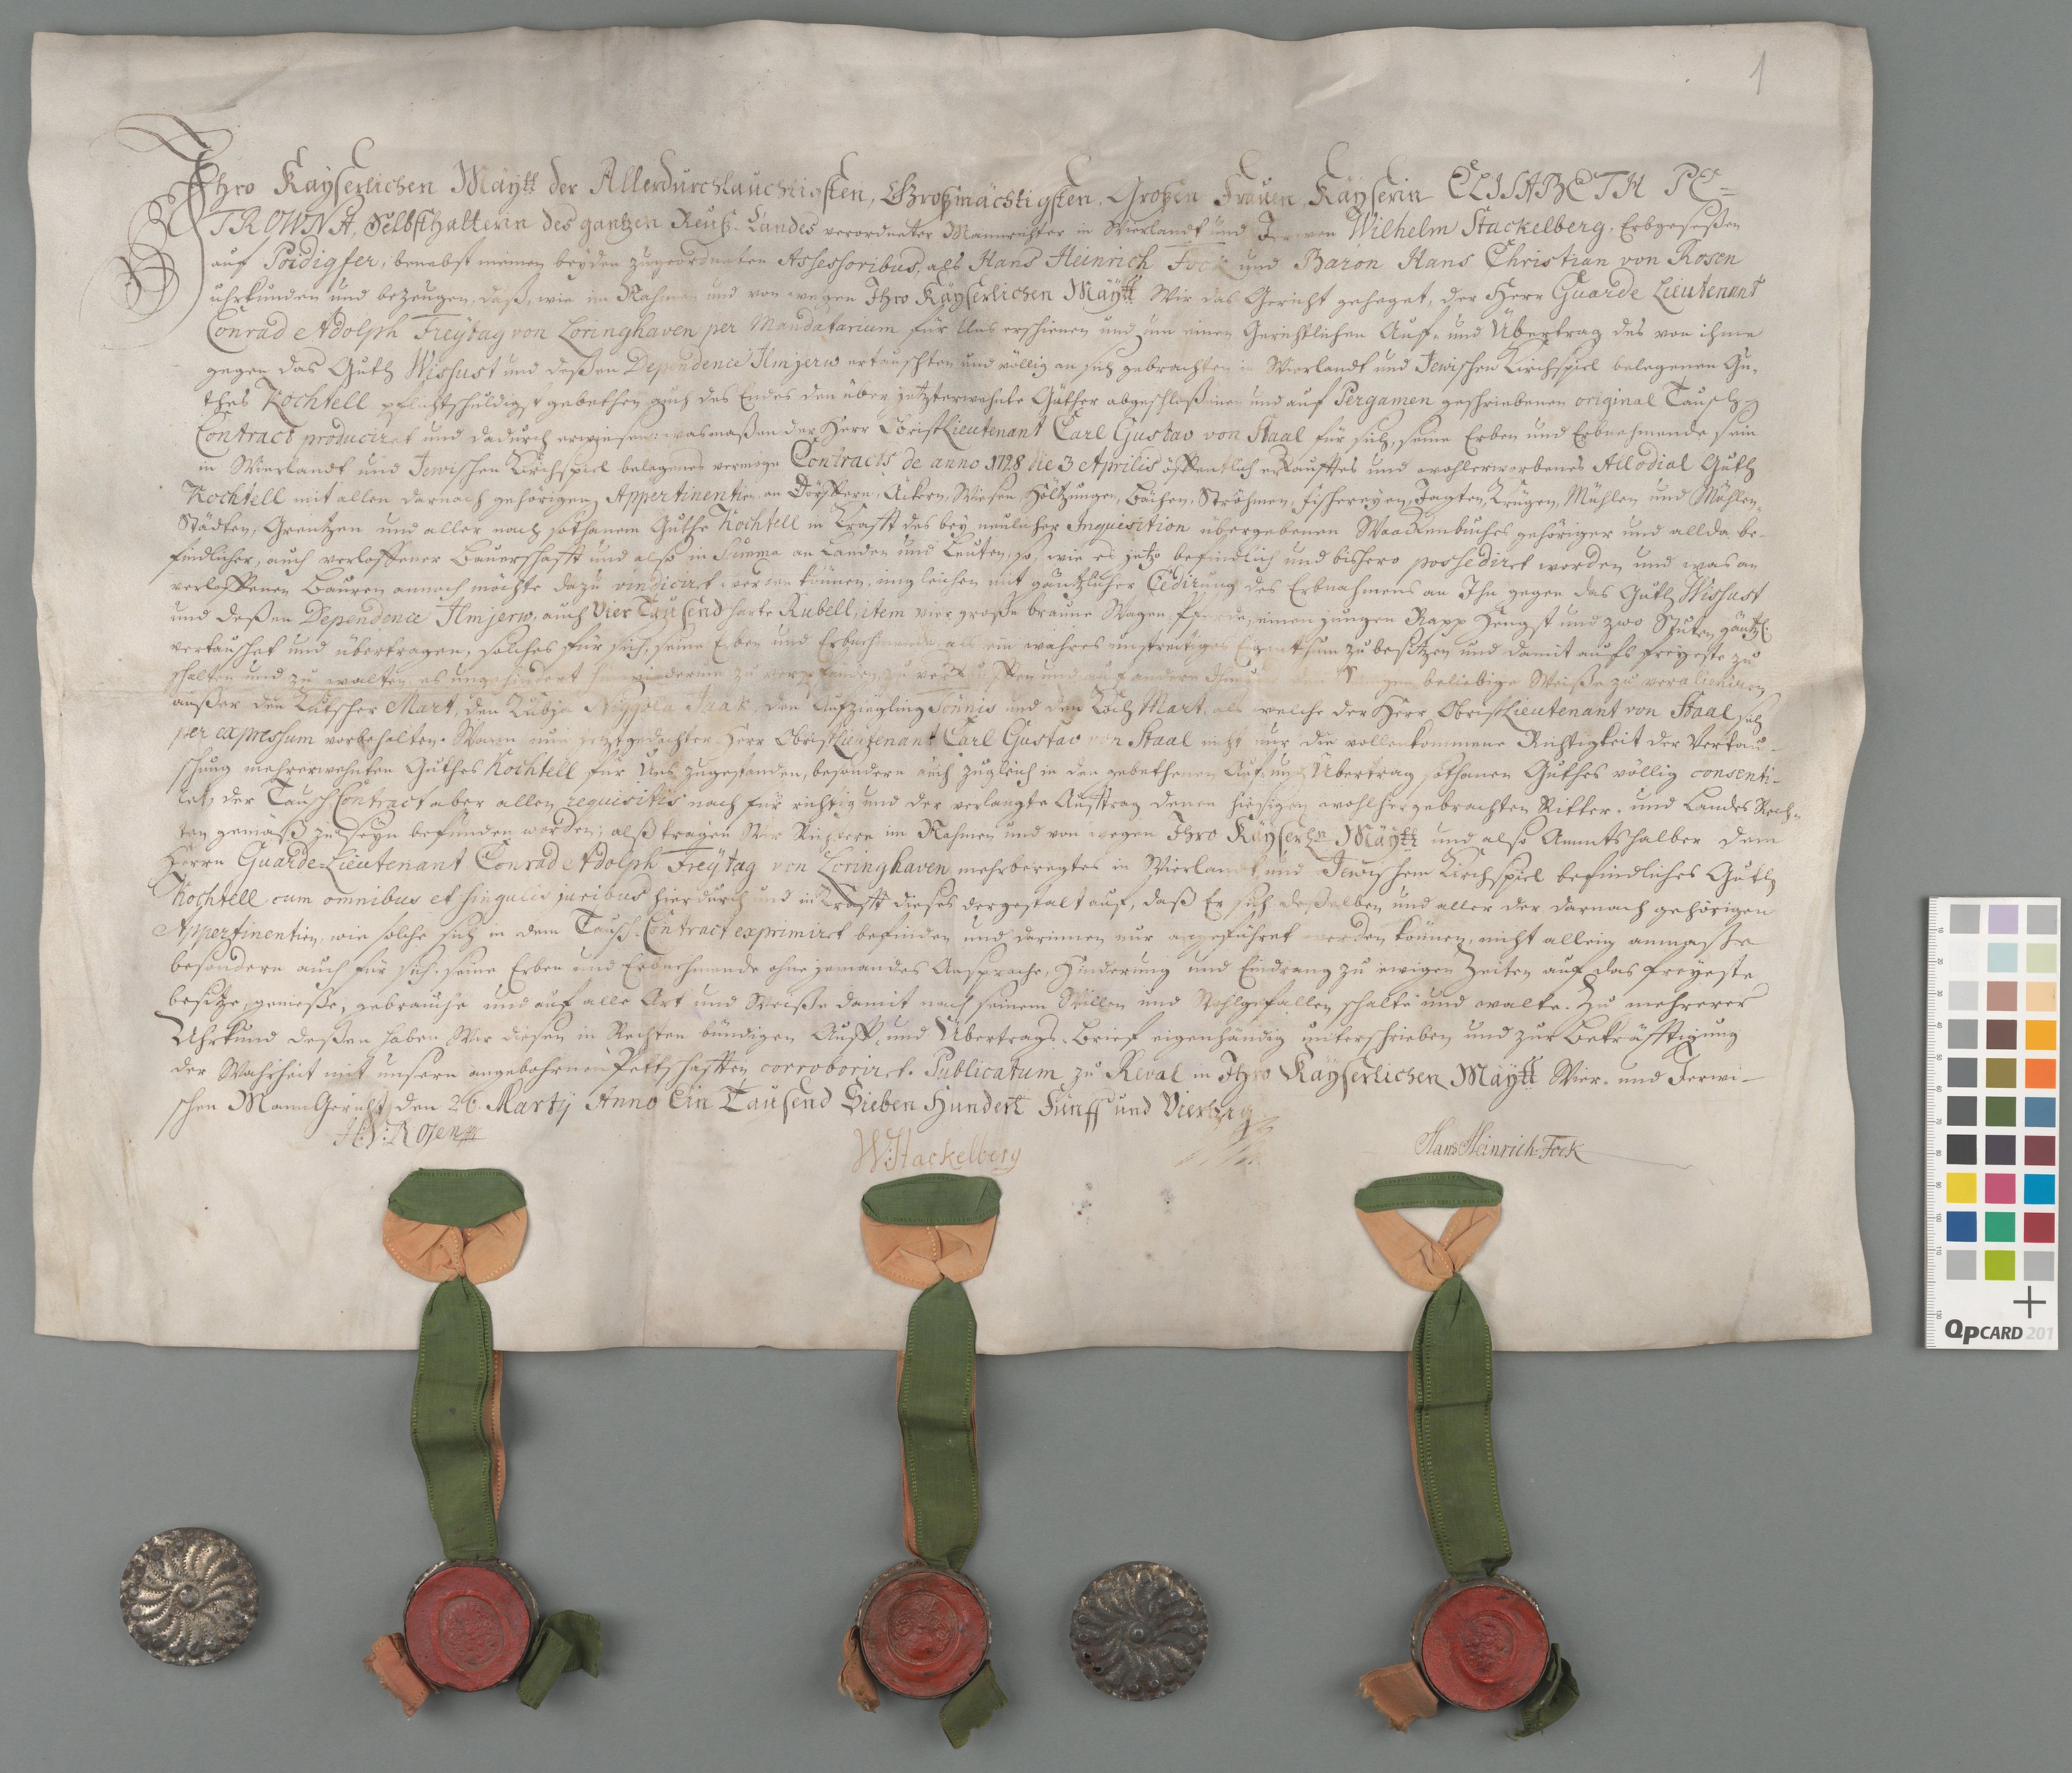 1
Ihro Kayserlichen Maÿtt der Allerdurchlauchtigsten, Großmächtigsten, Großen Frauen, Käyserin ELISABETH PE=
TROWNA, Selbsthalterin des gantzen Reuß-Landes verordneter Mannrichter in Wierlandt und Jerwen Wilhelm Stackelberg, Erbgeseßen
auf Poidigfer, benebst meinen beyden zugeordneten Assessoribus, als Hans Heinrich Fock und Baron Hans Christian von Rosen
uhrkunden und bezeugen, daß, wie im Nahmen und von wegen Ihro Käyserlichen Maÿtt Wir das Gericht geheget, der Herr Guarde Lieutenant
Conrad Adolph Freÿtag von Loringhaven per Mandatarium für Uns erschienen und um einen Gerichtlichen Auf- und Übertrag des von ihme
gegen das Guth Wissust und deßen Dependence Ilmjerw ertauschten und völlig an sich gebrachten in Wierlandt und Jewischen Kirchspiel belegenen Gu-
thes Kochtell pflichtschuldigst gebethen, auch des Endes den über jetzterwehnte Güther abgeschloßenen und auf Pergamen geschriebenen original Tausch-
Contract produciret und dadurch erwiesen: wasmaßen der Herr ObristLieutenant Carl Gustav von Staal für sich, seine Erben und Erbnehmende sein
in Wierlandt und Jewischen Kirchspiel belegenes vermöge Contracts de anno 1728 die 3 Aprilis öffentlich erkaufftes und wohlerworbenes Allodial Guth
Kochtell mit allen darnach gehörigen Appertinentien, an Dörffern, Äckern, Wiesen, Höltzungen, Bächen, Ströhmen, Fischereyen, Jagten, Krügen, Mühlen und Mühlen-
Städten, Grentzen und aller nach sothanem Guthe Kochtell in Krafft des bey neulicher Inquisition übergebenen Waackenbuches gehöriger und allda be-
findlicher, auch verloffener Bauerschafft und also in Summa an Landen und Leuten, so, wie es jetzo befindlich und bishero possediret worden und was an
verloffenen Bauren annoch möchte dazu vindiciret werden können, imgleichen mit gäntzlicher Cedirung des Erbnahmens an Ihn gegen das Guth Wissust
und deßen Dependence Ilmjerw, auch Vier Tausend harte Rubell, item vier große braune Wagen-Pferde, einen jungen Rapp Hengst und zwo Stuten gäntzl:
vertauschet und übertragen, solches für sich, seine Erben und Erbnehmende, als ein wahres unstreitiges Eigenthum zu besitzen und damit aufs freyeste zu
schalten und zu walten, es ungehindert hinwiederum zu verpfänden, zu verkauffen und auf andere beliebige Weiße zu veralieniren
außer den Kutscher Mart, den Kubja Jaak, den Aufziegling Tönnis und den Koch Mart, als welche der Herr ObristLieutenant von Staal sich
per expressum vorbehalten. Wann nun jetztgedachter Herr ObristLieutenant Carl Gustav von Staal nicht nur die vollenkommene Richtigkeit der Vertau-
schung mehrerwehnten Guthes Kochtell für Uns zugestanden, besondern auch zugleich in den gebethenen Auf- und Übertrag sothanen Guthes völlig consenti-
ret, der TauschContract aber allen requisitis nach für richtig und der verlangte Aufftrag denen hiesigen wohlhergebrachten Ritter- und Landes Rech-
ten gemäß zu seyn befunden worden; alß tragen Wir Richtere im Nahmen und von wegen Ihro Käyserhn Maÿtt und also Ammtshalber dem
Herrn Guarde-Lieutenant Conrad Adolph Freÿtag von Loringhaven mehrberegtes in Wierlandt und Jewischen Kirchspiel befindliches Guth
Kochtell cum omnibus et singulis juribus hierdurch und in Krafft dieses dergestalt auf, daß Er sich deßelben und aller der darnach gehörigen
Appertinentien, wie solche sich in dem Tausch-Contract exprimiret befinden und darinnen nur angeführet werden können, nicht allein anmaße
besondern auch für sich, seine Erben und Erbnehmende ohne jemandes Ansprache, Hinderung und Eindrang zu ewigen Zeiten auf das freyeste
besitze, genieße, gebrauche und auf alle Art und Weiße damit nach seinem Willen und Wohlgefallen schalte und walte. Zu mehrerer
Uhrkund deßen haben Wir diesen in Rechten bündigen Auff- und Übertrags-Brief eigenhändig unterschrieben und zur Bekräfftigung
der Wahrheit mit unsern angebohrnen Pettschafften corroboriret. Publicatum zu Reval in Ihro Käyserlichen Maÿtt Wier- und Jerwi-
schen MannGericht, den 26. Martij Anno Ein Tausend Sieben Hundert Fünff und Viertzig
H: C: Rosen
W: Stackelberg
Hans Heinrich Fock
QpCARD 201